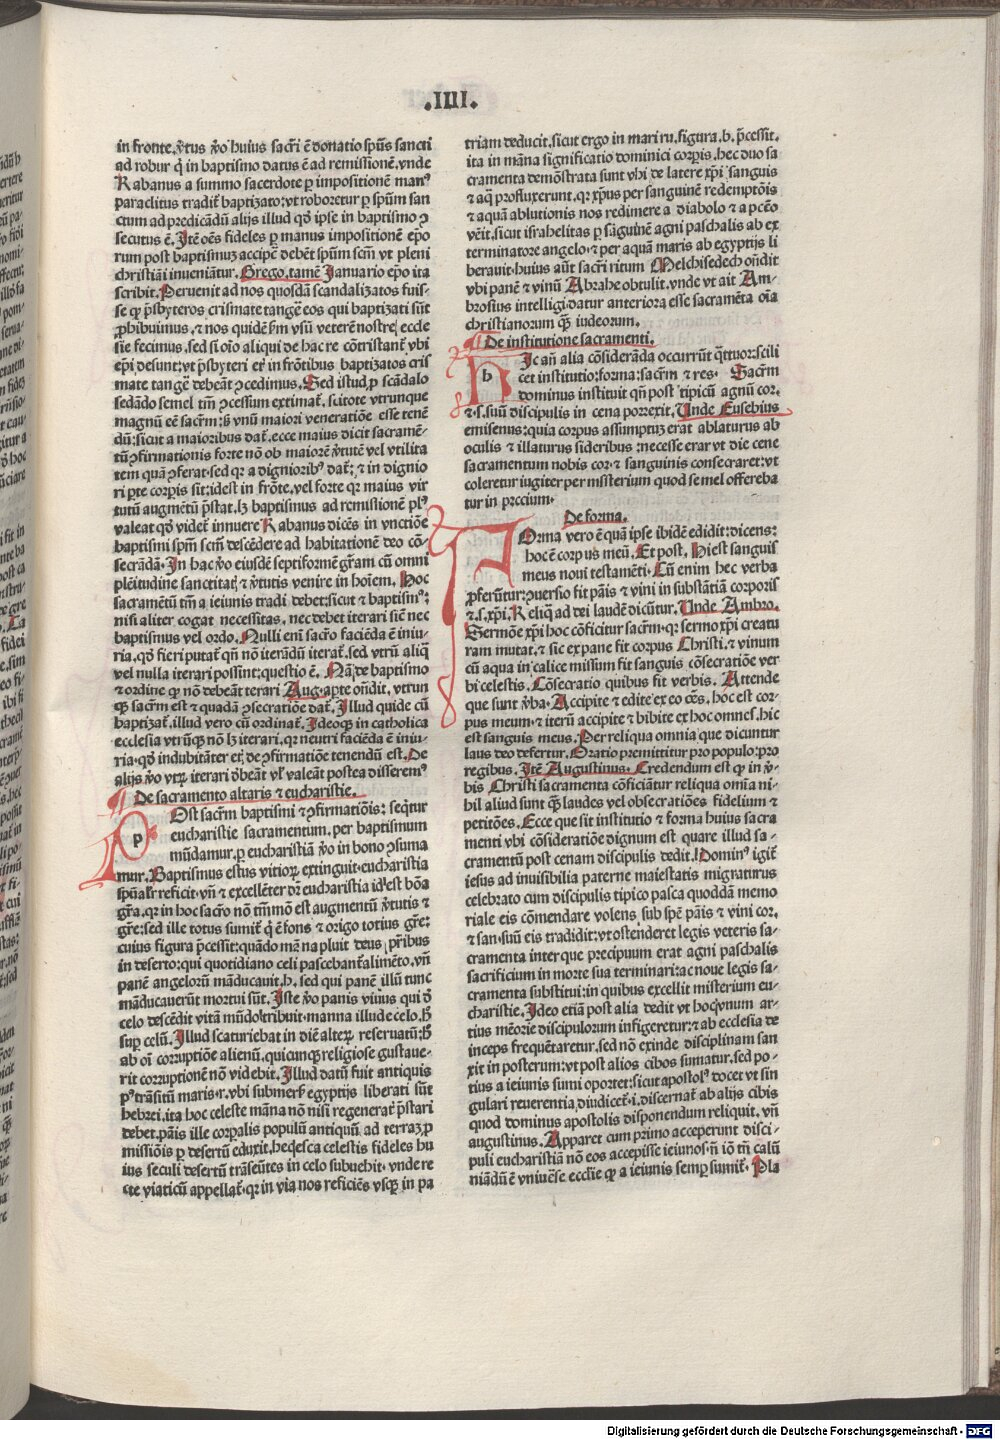 .IIII.
in fronte. v̄tus v̄o huius sacr̄i ē donatio sp̄us sancti
ad robur q̄ in baptismo datus ē ad remissionē. vnde
Rabanus a summo sacerdote ꝑ impositionē manꝰ
paraclitus tradit̄ baptizato: vt roboretur ꝑ sp̄um san
ctum ad predicādū alijs illud qđ ipse in baptismo ꝯ
secutus ē. Itē oēs fideles ꝑ manus impositionē ep̄o
rum post baptismuz accipē debēt sp̄um scm̄ vt pleni
christiāi inueniātur. Grego. tamē Januario ep̄o ita
scribit. Peruenit ad nos quosdā scandalizatos fuis-
se ꝙ p̄sbyteros crismate tangēt eos qui baptizati sūt
ꝓhibuimus. ⁊ nos quidē ẜm vsū veterē nostre eccle
sie fecimus. sed si oīo aliqui de hac re cōtristant̄ vbi
ep̄i desunt: vt p̄sbyteri et̄ in frōtibus baptizatos cris
mate tangē debeāt ꝯcedimus. Sed istud ꝓ scādalo
sedādo semel tm̄ ꝯcessum extimat̄. scitote vtrunque
magnū eē sacr̄m: ẜ vnū maiori veneratiōe esse tenē
dū: sicut a maioribus dat̄. ecce maius dicit sacramē-
tū ꝯfirmationis forte nō ob maiorē v̄tutē vel vtilita
tem quā ꝯferat. sed qr a dignioribꝰ dat̄: ⁊ in dignio
ri pte corp̄is sit: idest in frōte. vel forte qr maius vir
tutū augmētū p̄stat. lꝫ baptismus ad remissionē plꝰ
valeat qđ videt̄ innuere Rabanus dicēs in vnctiōe
baptismi sp̄m scm̄ descēdere ad habitationē deo cō-
secrādā. In hac v̄o eiusdē septiformē gr̄am cū omni
plēitudine sanctitat̄ ⁊ v̄tutis venire in hoīem. Hoc
sacramētū tm̄ a ieiunis tradi debet: sicut ⁊ baptismꝰ:
nisi aliter cogat necessitas. nec debet iterari sic̄ nec
baptismus vel ordo. Nulli eni sacr̄o faciēda ē iniu-
ria. qđ fieri putat̄ qn̄ nō iterādū iterat̄. sed vtrū aliq̄
vel nulla iterari possint: questio ē. Nā de baptismo
⁊ ordine ꝙ nō debeāt terari Aug. apte oñdit. vtrun
qꝫ sacr̄m est ⁊ quadā ꝯsecratiōe dat̄. Illud quide cū
baptizat̄. illud vero cū ordinat̄. Ideoqꝫ in catholica
ecclesia vtrūqꝫ nō lꝫ iterari. qr neutri faciēda ē iniu-
ria. qđ indubitāter et̄ de ꝯfirmatiōe tenendū est. De
alijs v̄o vtꝝ iterari d̄beāt vl̄ valeāt postea disseremꝰ
De sacramento altaris ⁊ eucharistie.
p Ost sacr̄m baptismi ⁊ ꝯfirmatiōis: seq̄tur
eucharistie sacramentum. per baptismum
mūdamur. ꝑ eucharistiā v̄o in bono ꝯsuma
mur. Baptismus estus vitioꝝ extinguit. eucharistia
sp̄uālr̄ reficit. vn̄ ⁊ excellēter dr̄ eucharistia idest bōa
gr̄a. qr in hoc sacr̄o nō tm̄mō est augmentū v̄tutis ⁊
gr̄e: sed ille totus sumit̄ q̄ ē fons ⁊ origo totius gr̄e:
cuius figura p̄cessit: quādo mēna pluit deus pr̄ibus
in deserto: qui quotidiano celi pascebant̄ alimēto. vn̄
panē angelorū māducauit. h. sed qui panē illū tunc
māducauerūt mortui sūt. Iste v̄o panis viuus qui d̄
celo descēdit vitā mūdo tribuit. manna illud e celo. ẜ
suꝑ celū. Illud scaturiebat in diē alteꝝ reseruatū: ẜ
ab oī corruptiōe alienū. quicunqꝫ religiose gustaue-
rit corruptionē nō videbit. Illud datū fuit antiquis
pꝰ trāsitū maris. r. vbi submers̄ egyptijs liberati sūt
hebrei. ita hoc celeste māna nō nisi regenerat̄ p̄stari
debet. pāis ille corꝑalis populū antiquū ad terraꝫ ꝓ
missiōis ꝑ desertū eduxit. hec esca celestis fideles hu
ius seculi desertū trāseūtes in celo subuehit. vnde re
cte viaticū appellat̄. qr in via nos reficiēs vsqꝫ in pa
triam deducit. sicut ergo in mari ru. figura. b. p̄cessit.
ita in māna significatio dominici corp̄is. hec duo sa
cramenta demōstrata sunt vbi de latere xp̄i sanguis
⁊ aq̄ profluxerunt. qr xp̄us per sanguinē redemptōis
⁊ aquā ablutionis nos redimere a diabolo ⁊ a pctō
vēit. sicut israhelitas ꝑ sāguinē agni paschalis ab ex
terminatore angelo. ⁊ per aquā maris ab egyptijs li
berauit. huius aūt sacr̄i ritum Melchisedech oñdit
vbi panē ⁊ vinū Abrahe obtulit. vnde vt ait Am-
brosius intelligi datur anteriora esse sacramēta oīa
christianorum qꝫ iudeorum.
De institutione sacramenti.
b Ic aūt alia cōsiderāda occurrūt q̄tuor: scili
cet institutio: forma: sacr̄m ⁊ res. Sacr̄m
dominus instituit qn̄ post tipicū agnū cor.
⁊. s. suū discipulis in cena porrexit. Unde Eusebius
emisenus: quia corpus assumptuꝫ erat ablaturus ab
oculis ⁊ illaturus sideribus: necesse erat vt die cene
sacramentum nobis cor. ⁊ sanguinis consecraret: vt
coleretur iugiter per misterium quod semel offereba
tur in precium.
De forma.
Orma vero ē quā ipse ibidē edidit: dicens:
hoc ē corpus meū. Et post. Hi est sanguis
meus noui testamēti. Cū enim hec verba
ꝓferūtur: ꝯuersio fit pāis ⁊ vini in substātiā corporis
⁊. s. xp̄i. Reliq̄ ad dei laudē dicūtur. Unde Ambro.
Sermōe xp̄i hoc cōficitur sacr̄m. qr sermo xp̄i creatu
ram mutat. ⁊ sic ex pane fit corpus Christi. ⁊ vinum
cū aqua in calice missum fit sanguis cōsecratiōe ver
bi celestis. Cōsecratio quibus fit verbis. Attende
que sunt v̄ba. Accipite ⁊ edite ex eo oēs. hoc est cor-
pus meum. ⁊ iterū accipite ⁊ bibite ex hoc omnes. hic
est sanguis meus. Per reliqua omnia que dicuntur
laus deo defertur. Oratio premittitur pro populo: pro
regibus. Itē Augustinus. Credendum est ꝙ in v̄-
bis Christi sacramenta cōficiātur reliqua omīa ni-
bil aliud sunt qꝫ laudes vel obsecratiōes fidelium ⁊
petitōes. Ecce que sit institutio ⁊ forma huius sacra
menti vbi cōsideratiōe dignum est quare illud sa-
cramentū post cenam discipulis dedit. Dominꝰ igit̄
iesus ad inuisibilia paterne maiestatis migraturus
celebrato cum discipulis tipico pasca quoddā memo
riale eis cōmendare volens sub spē pāis ⁊ vini cor.
⁊ san. suū eis tradidit: vt ostenderet legis veteris sa-
cramenta inter que precipuum erat agni paschalis
sacrificium in morte sua terminari: ac noue legis sa-
cramenta substitui: in quibus excellit misterium eu-
charistie. Ideo etiā post alia dedit vt hoc vnum ar-
tius mēorie discipulorum infigeretur: ⁊ ab ecclesia de
inceps frequētaretur. sed nō exinde disciplinam san
xit in posterum: vt post alios cibos sumatur. sed po-
tius a ieiunis sumi oportet: sicut apostolꝰ docet vt sin
gulari reuerentia diiudicet̄. i. discernat̄ ab alijs cibis
quod dominus apostolis disponendum reliquit. vn̄
augustinus. Apparet cum primo acceperunt disci-
puli eucharistiā nō eos accepisse ieiunos. nī iō tn̄ calū
niādū ē vniuēse ecclie ꝙ a ieiunis semꝑ sumit̄. Pla
Digitalisierung gefördert durch die Deutsche Forschungsgemeinschaft - DFG